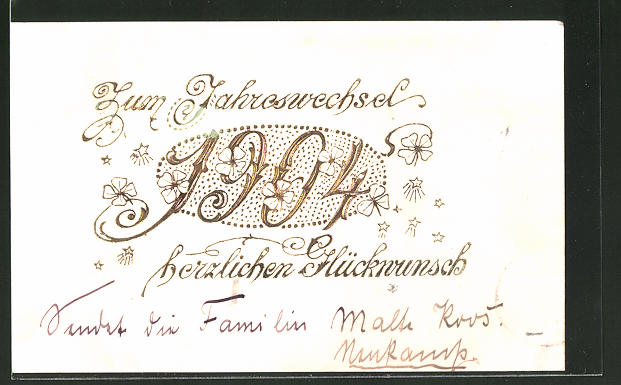 Zum Jahreswechsel
1904
herzlichen Glückwunsch
Sendet die Familien Malte Koos.
Neukamp.